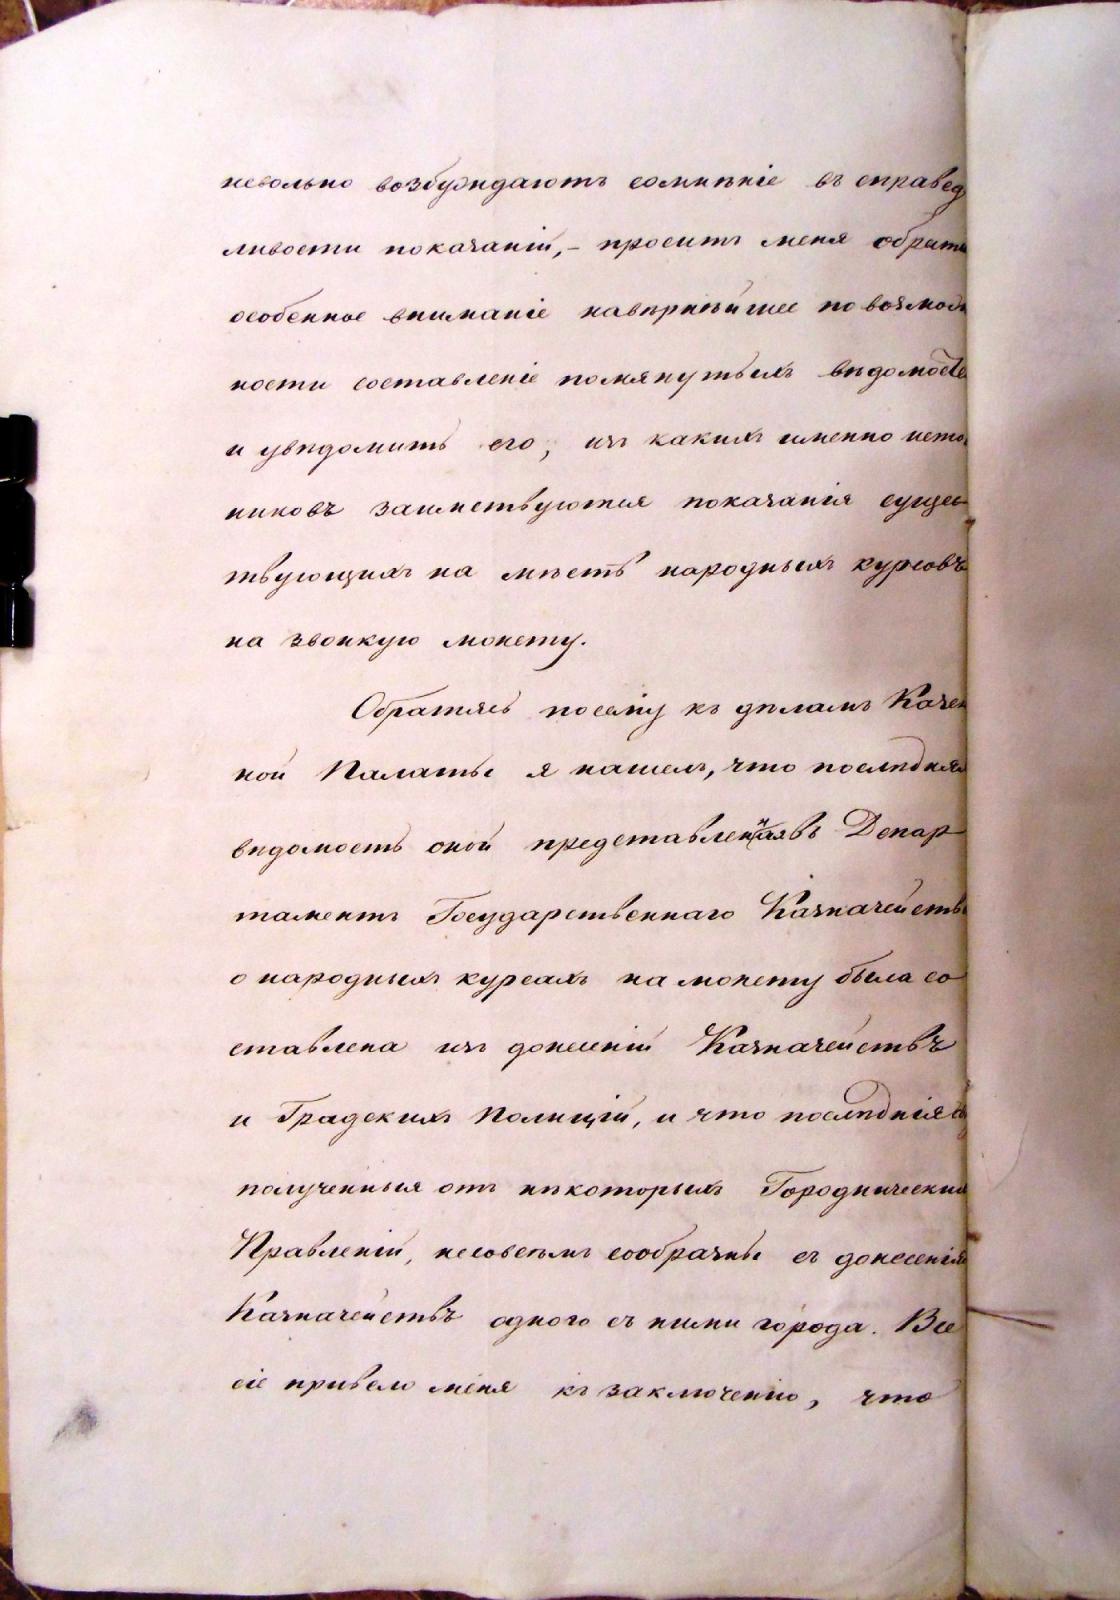 невольно возбуждаютъ сомнѣніе въ справед
ливости показаній,- проситъ меня обрати
особенное вниманіе навѣрнѣйшее по возмож
ности составленіе помянутыхъ вѣдомосте
и увѣдомить его, изъ какихъ именно исто
никовъ заимствуются показанія сущес
твующихъ на мѣстѣ народныхъ курсовъ
на звонкую монету.
Обратясь посему къ дѣламъ Казен
ной Палаты я нашелъ, что послѣдняя
вѣдомость оной представленная въ Депар
таментъ Государственнаго Казначейства
о народныхъ курсахъ на монету была со
ставлена изъ донесеній Казначействъ
и Градскихъ Полицій, и что послѣднія
полученныя отъ нѣкоторыхъ Городнически
Правленій, несовсѣмъ сообразны съ донесенія
Казначействъ одного съ ними города. Все
сіе привело меня къ заключенію, что